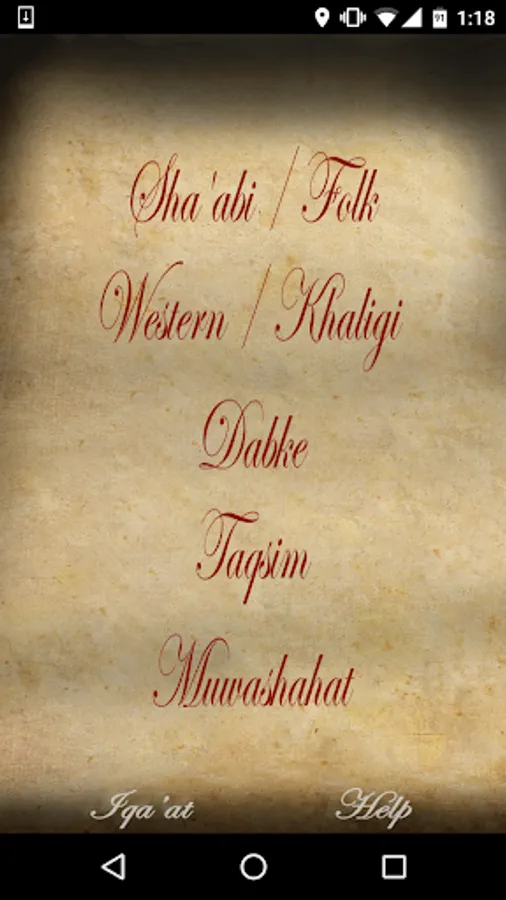 1:18
91
Sha'abi / Folk
Western / Khaligi
Dabke
Taqsim
Muwashahat
Iqa'at Help